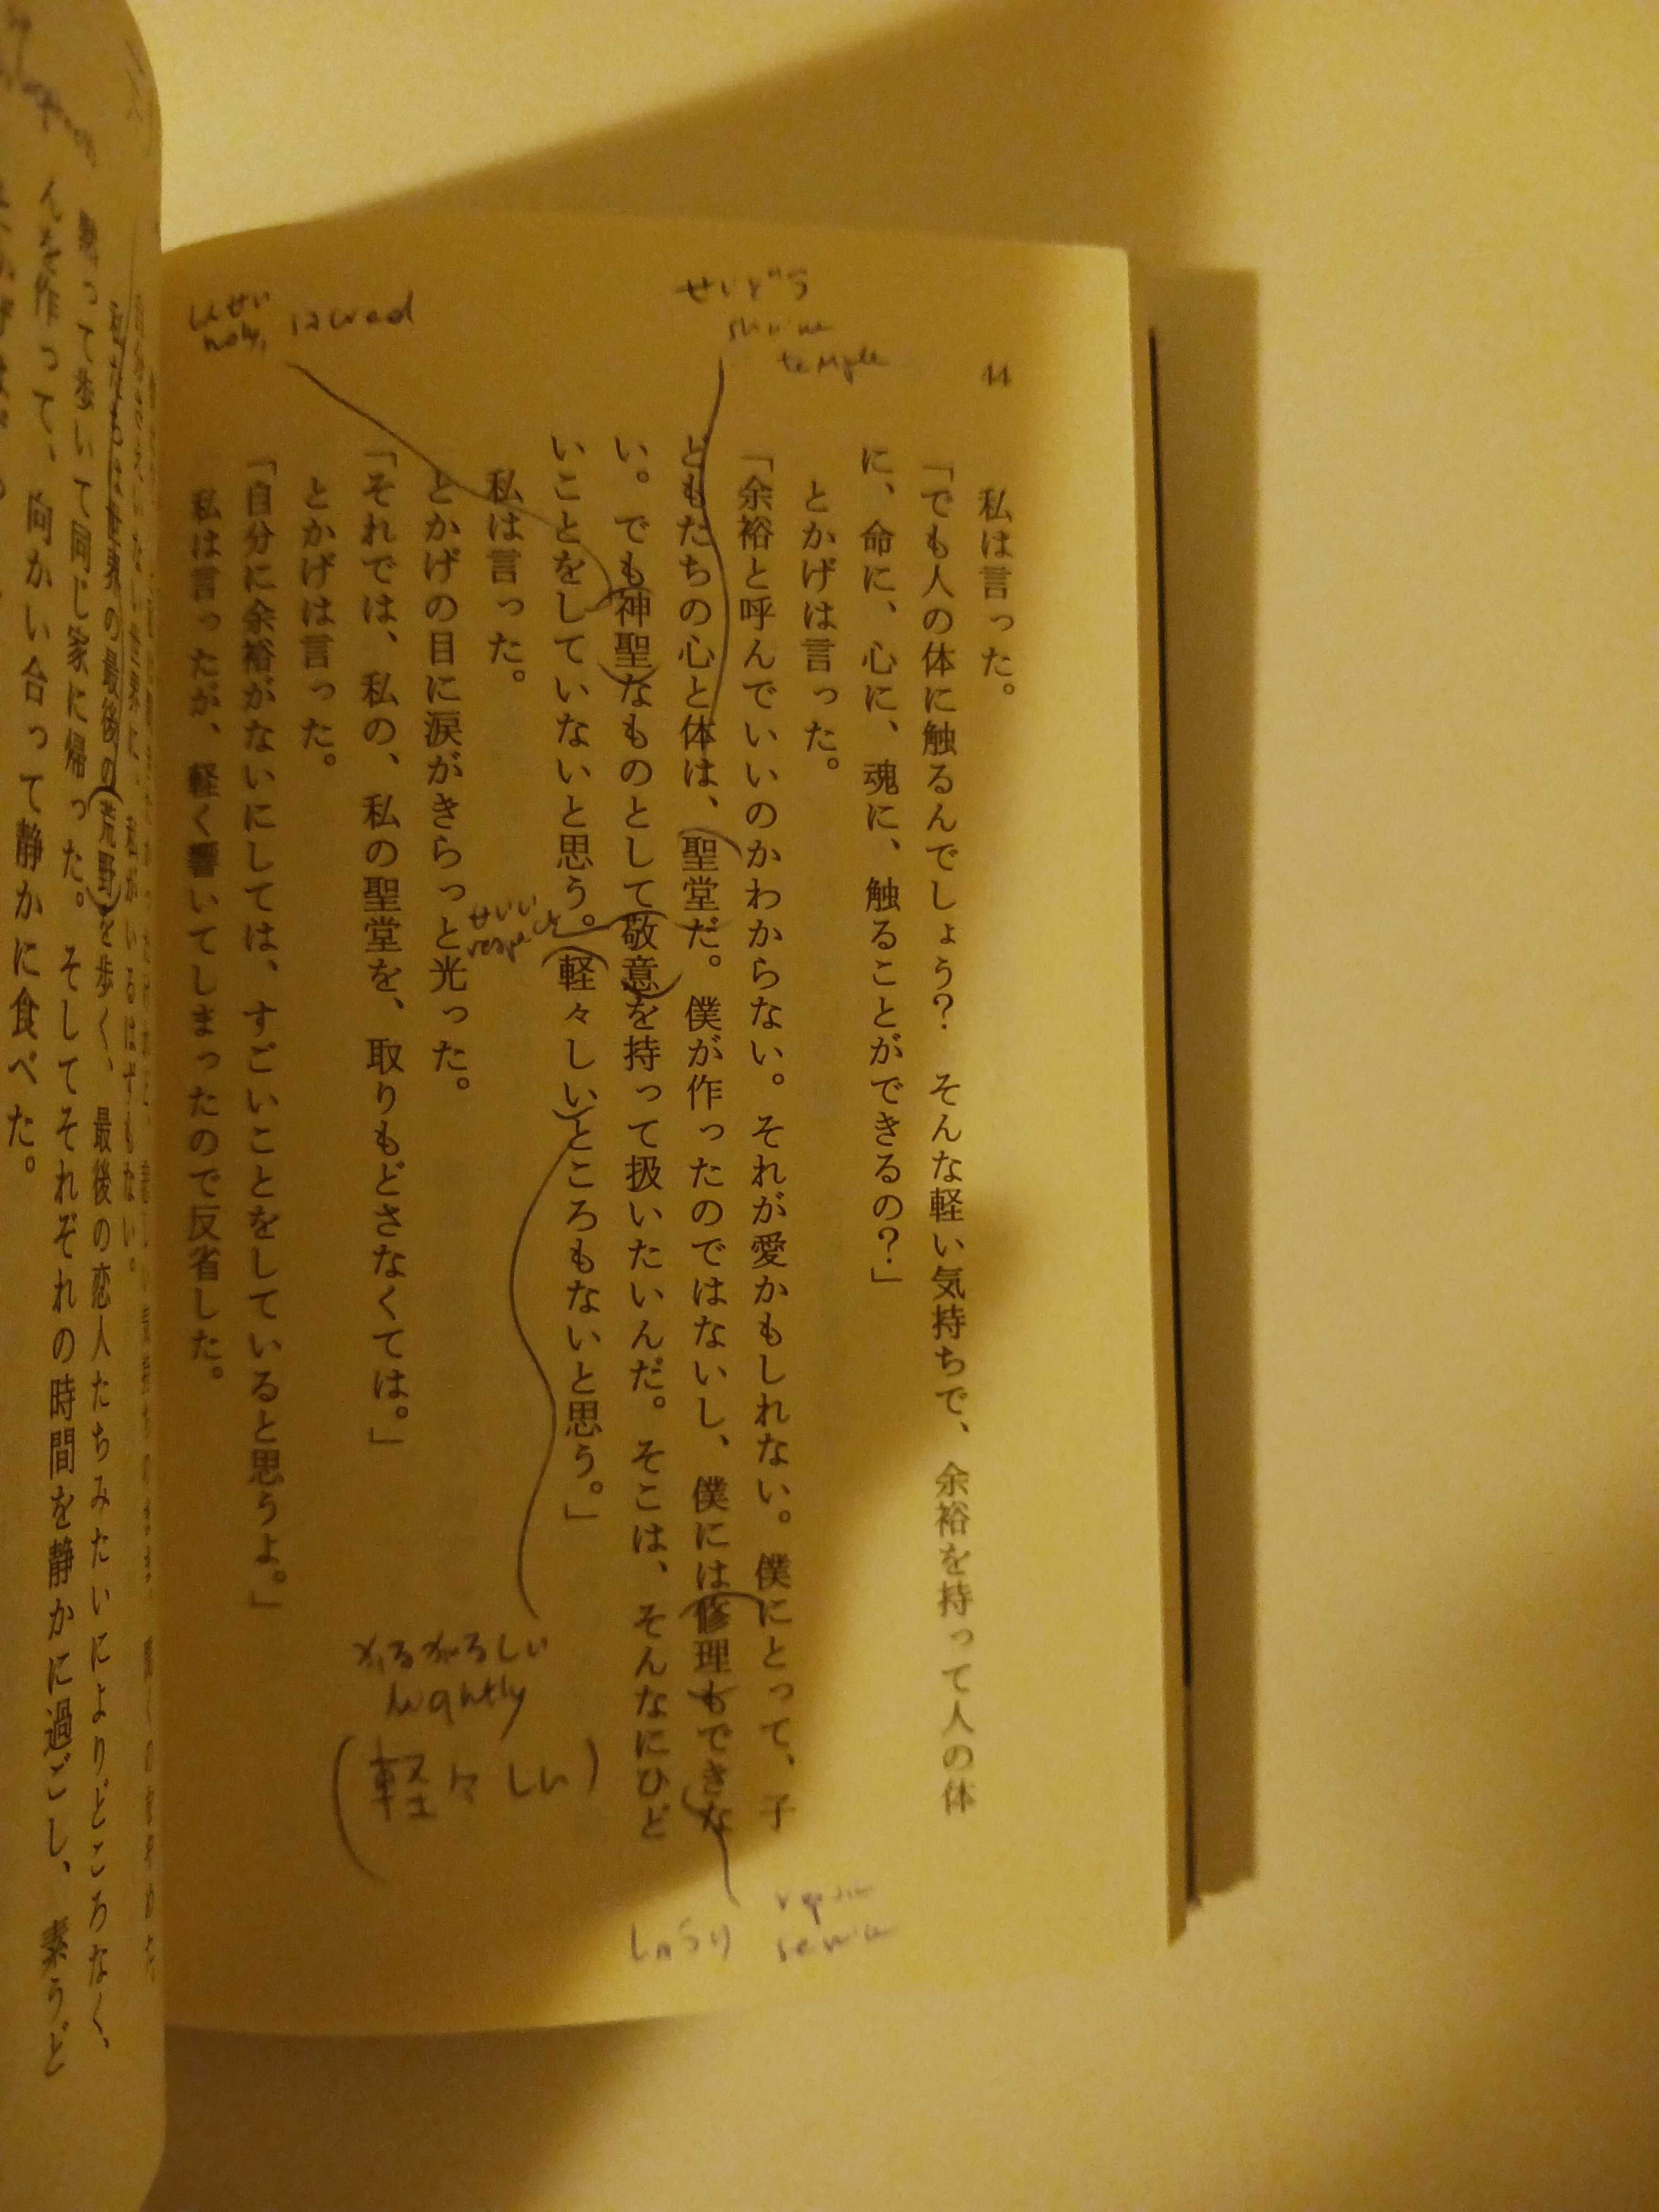 44
しんせい
holy, sacred
せいどう
shrine
temple
私は言った。
「でも人の体に触るんでしょう？　そんな軽い気持ちで、余裕を持って人の体
に、命に、心に、魂に、触ることができるの？」
とかげは言った。
「余裕と呼んでいいのかわからない。それが愛かもしれない。僕にとって、子
どもたちの心と体は、聖堂だ。僕が作ったのではないし、僕には修理もできな
い。でも神聖なものとして敬意を持って扱いたいんだ。そこは、そんなにひど
いことをしていないと思う。軽々しいところもないと思う。」
私は言った。
とかげの目に涙がきらっと光った。
「それでは、私の、私の聖堂を、取りもどさなくては。」
とかげは言った。
「自分に余裕がないにしては、すごいことをしていると思うよ。」
私は言ったが、軽く響いてしまったので反省した。
せいい
respect
かるがるしい
lightly
(軽々しい)
しゅうり
repair
service
私たちは世界の最後の荒野を歩く、最後の恋人たちみたいによりどころなく、
黙って歩いて同じ家に帰った。そしてそれぞれの時間を静かに過ごし、素うど
んを作って、向かい合って静かに食べた。